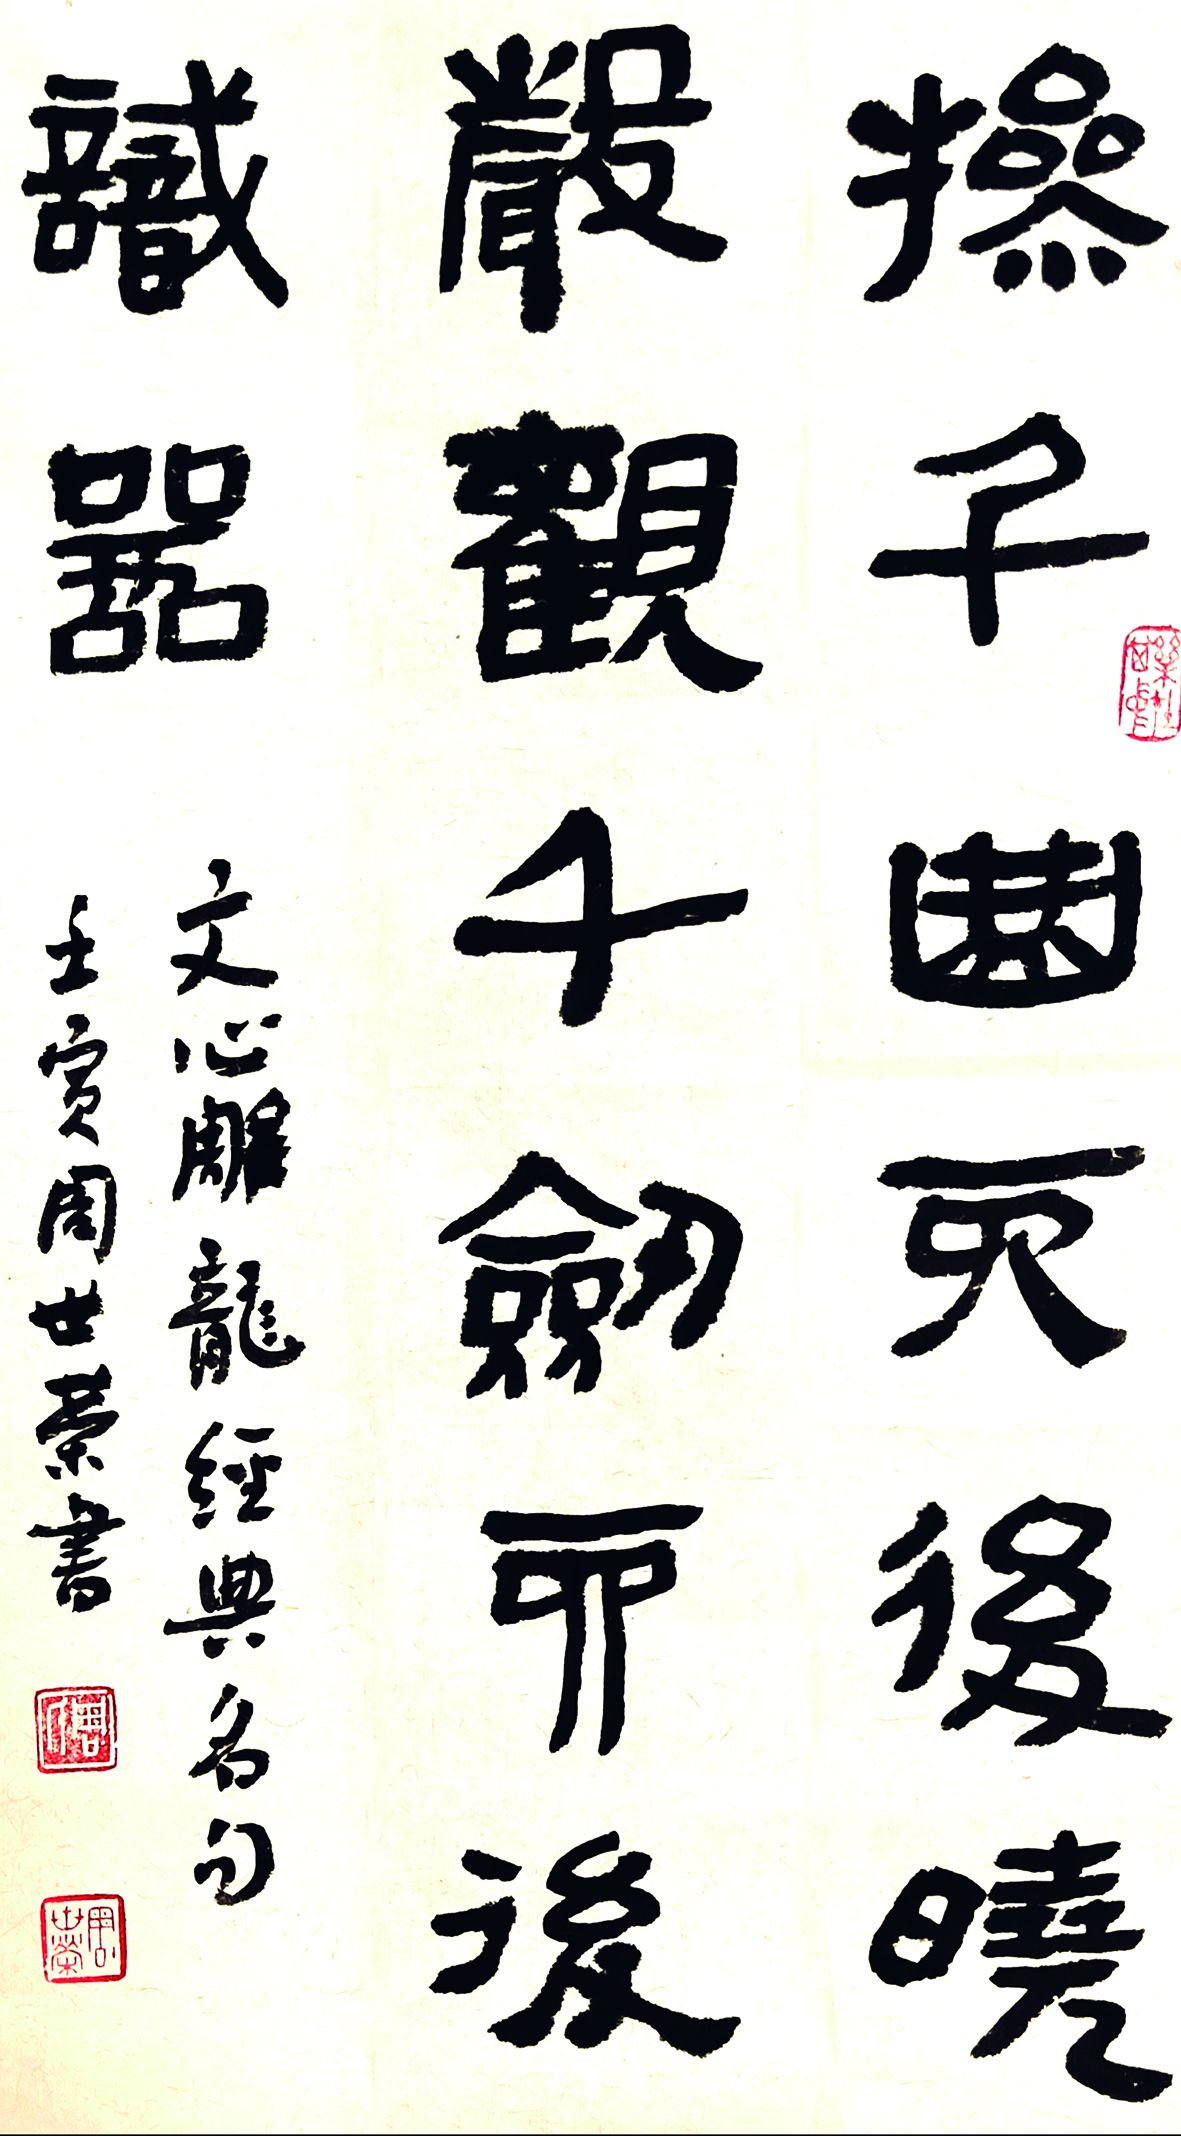 操千曲而後曉
聲觀千劒而後
識器
文心雕龍經典名句
壬寅周世榮書